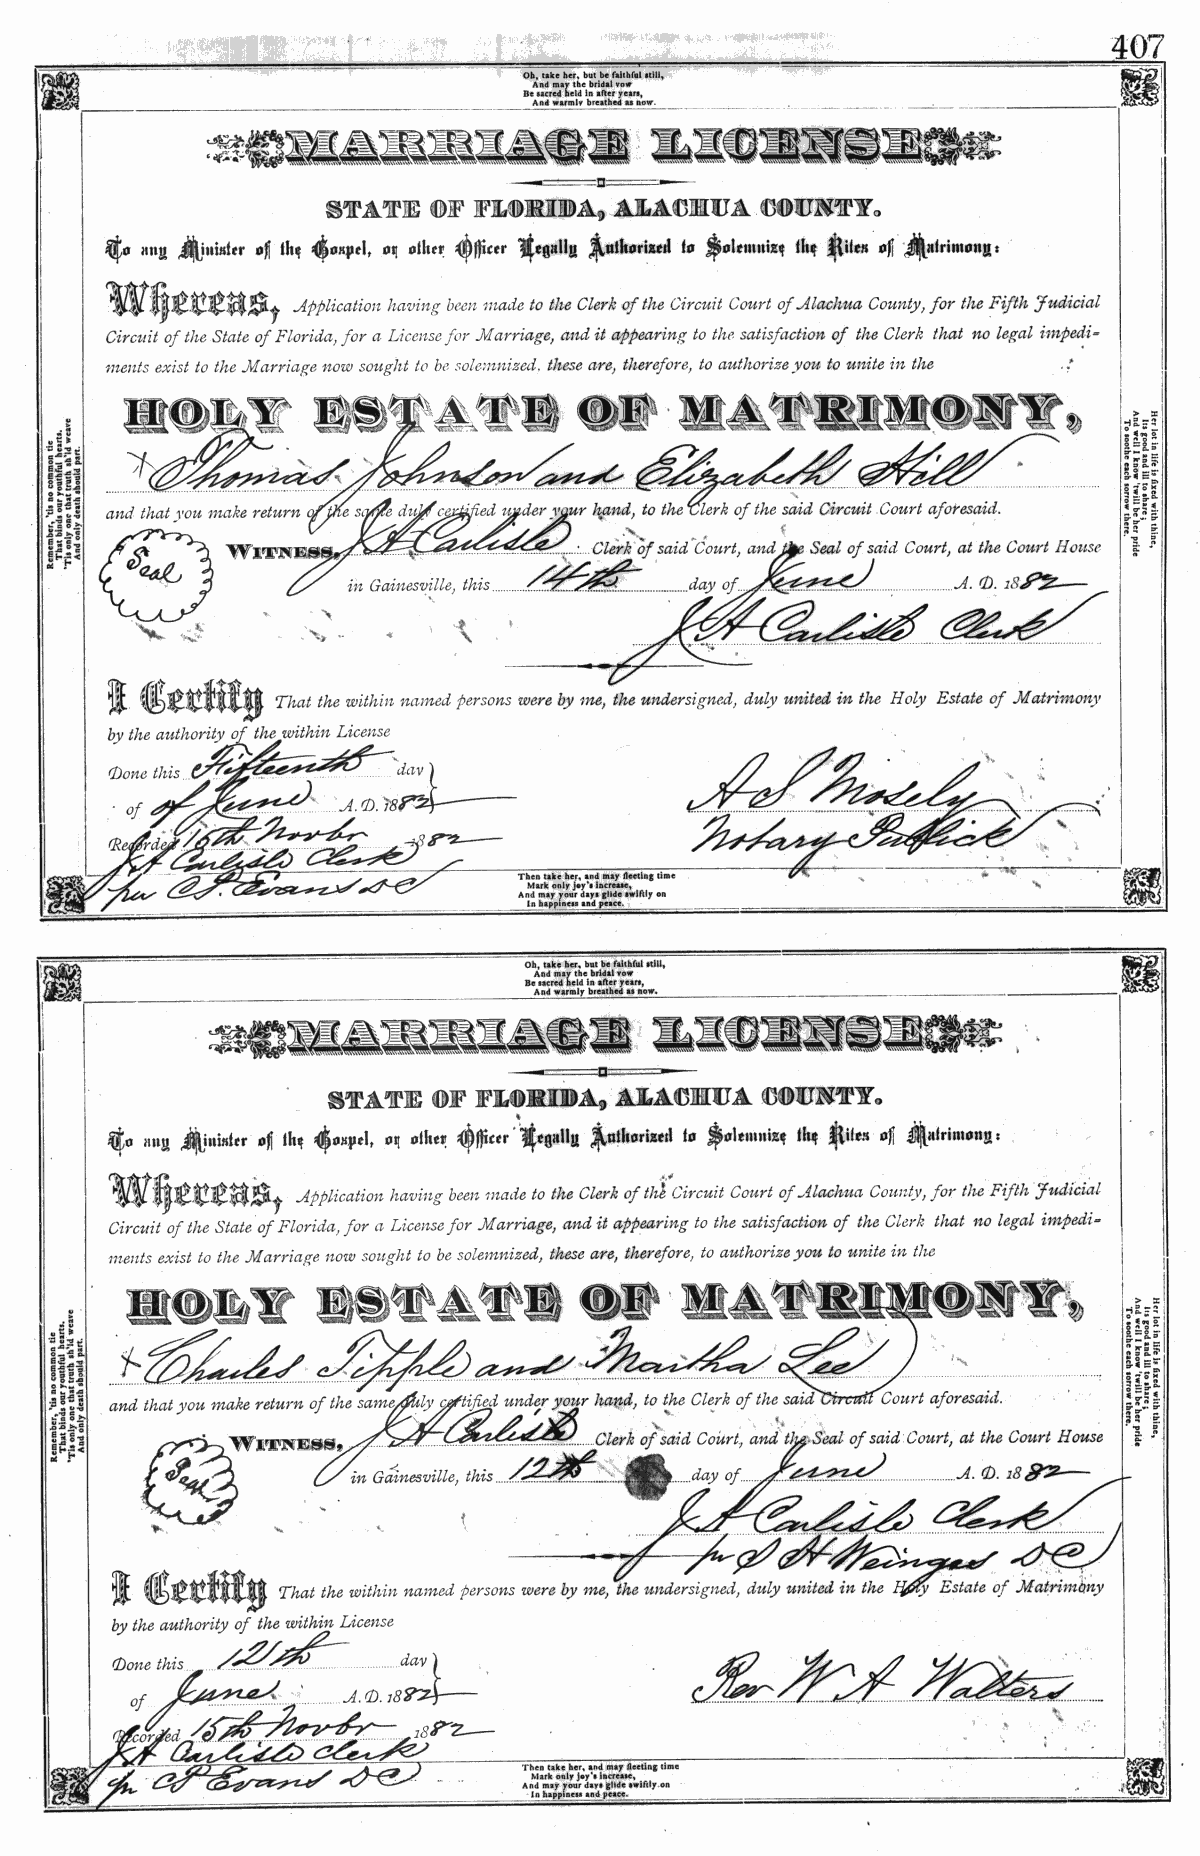 407
Oh, take her, but be faithful still,
And may the bridal vow
Be sacred held in after years,
And warmly breathed as now.
MARRIAGE LICENSE
STATE OF FLORIDA, ALACHUA COUNTY.
To any Minister of the Gospel, or other Officer Legally Authorized to Solemnize the Rites of Matrimony:
Whereas, Application having been made to the Clerk of the Circuit Court of Alachua County, for the Fifth Judicial
Circuit of the State of Florida, for a License for Marriage, and it appearing to the satisfaction of the Clerk that no legal impedi-
ments exist to the Marriage now sought to be solemnized, these are, therefore, to authorize you to unite in the
HOLY ESTATE OF MATRIMONY,
x Thomas Johnson and Elizabeth Hill
and that you make return of the same duly certified under your hand, to the Clerk of the said Circuit Court aforesaid.
Seal
WITNESS, J A Carlisle Clerk of said Court, and the Seal of said Court, at the Court House
in Gainesville, this 14th day of June A. D. 1882
J A Carlisle Clerk
I Certify That the within named persons were by me, the undersigned, duly united in the Holy Estate of Matrimony
by the authority of the within License
Done this Fifteenth day
of of June A.D. 1882
A S Mosely
Notary Publick
Recorded 15th Novbr 1882
J A Carlisle Clerk
per C P. Evans DC
Then take her, and may fleeting time
Mark only joy's increase,
And may your days glide swiftly on
In happiness and peace.
Remember, 'tis no common tie
That binds our youthful hearts,
'Tis only one that truth sh'ld weave
And only death should part.
Her lot in life is fixed with thine,
Its good and ill to share;
And well I know 'twill be her pride
To soothe each sorrow there.
Oh, take her, but be faithful still,
And may the bridal vow
Be sacred held in after years,
And warmly breathed as now.
MARRIAGE LICENSE
STATE OF FLORIDA, ALACHUA COUNTY.
To any Minister of the Gospel, or other Officer Legally Authorized to Solemnize the Rites of Matrimony:
Whereas, Application having been made to the Clerk of the Circuit Court of Alachua County, for the Fifth Judicial
Circuit of the State of Florida, for a License for Marriage, and it appearing to the satisfaction of the Clerk that no legal impedi-
ments exist to the Marriage now sought to be solemnized, these are, therefore, to authorize you to unite in the
HOLY ESTATE OF MATRIMONY,
x Charles Tipple and Martha Lee
and that you make return of the same duly certified under your hand, to the Clerk of the said Circuit Court aforesaid.
Seal
WITNESS, J A Carlisle Clerk of said Court, and the Seal of said Court, at the Court House
in Gainesville, this 12th day of June A. D. 1882
J A Carlisle Clerk
pr S H Weinges DC
I Certify That the within named persons were by me, the undersigned, duly united in the Holy Estate of Matrimony
by the authority of the within License
Done this 12th day
of June A.D. 1882
Rev W A Walters
Recorded 15th Novbr 1882
J A Carlisle clerk
pr C P Evans DC
Then take her, and may fleeting time
Mark only joy's increase,
And may your days glide swiftly on
In happiness and peace.
Remember, 'tis no common tie
That binds our youthful hearts,
'Tis only one that truth sh'ld weave
And only death should part.
Her lot in life is fixed with thine,
Its good and ill to share;
And well I know 'twill be her pride
To soothe each sorrow there.